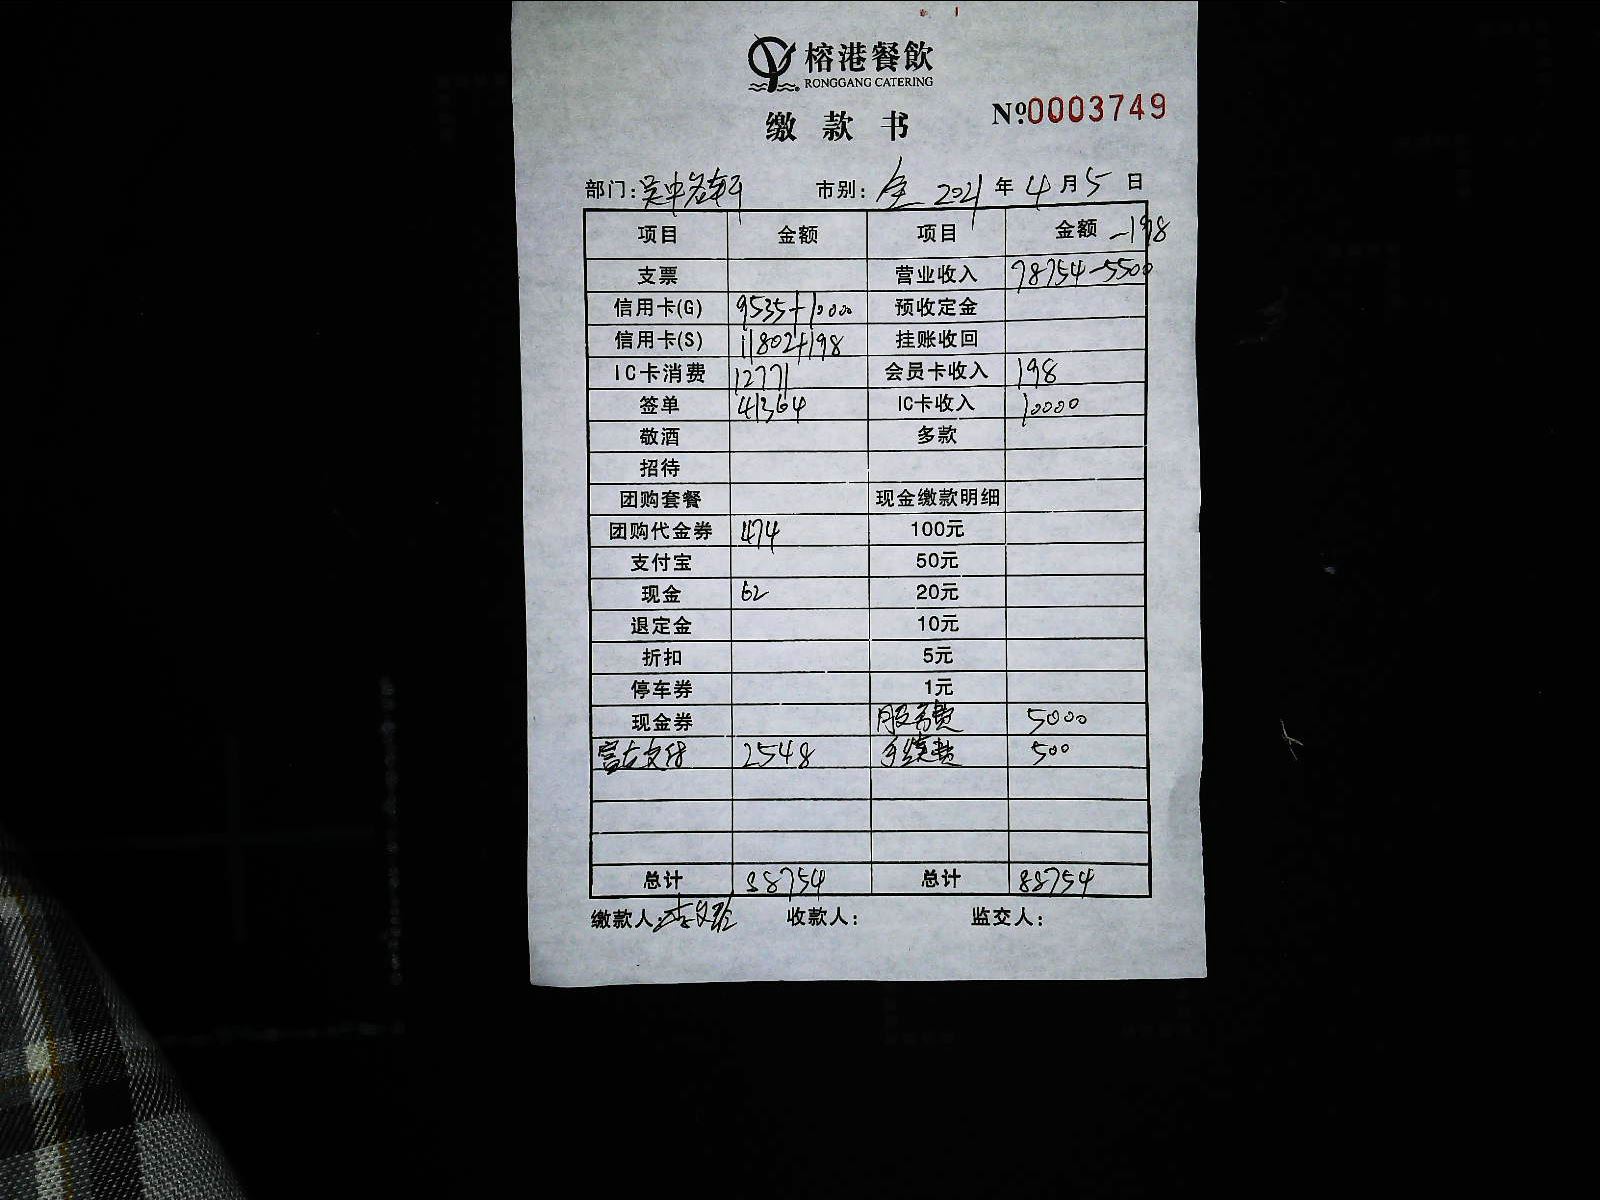 榕港餐飲
RONGGANG CATERING
缴款书
№:0003749
部门:吴中名轩 市别: 全 2021年4月5日
项目 金额 项目 金额 -198
支票 营业收入 78754-5500
信用卡(G) 9535+10000 预收定金
信用卡(S) 11802+198 挂账收回
IC卡消费 12771 会员卡收入 198
签单 41364 IC卡收入 10000
敬酒 多款
招待
团购套餐 现金缴款明细
团购代金券 474 100元
支付宝 50元
现金 62 20元
退定金 10元
折扣 5元
停车券 1元
现金券 服务费 5000
富友支付 2548 手续费 500
总计 88754 总计 88754
缴款人: 收款人: 监交人: